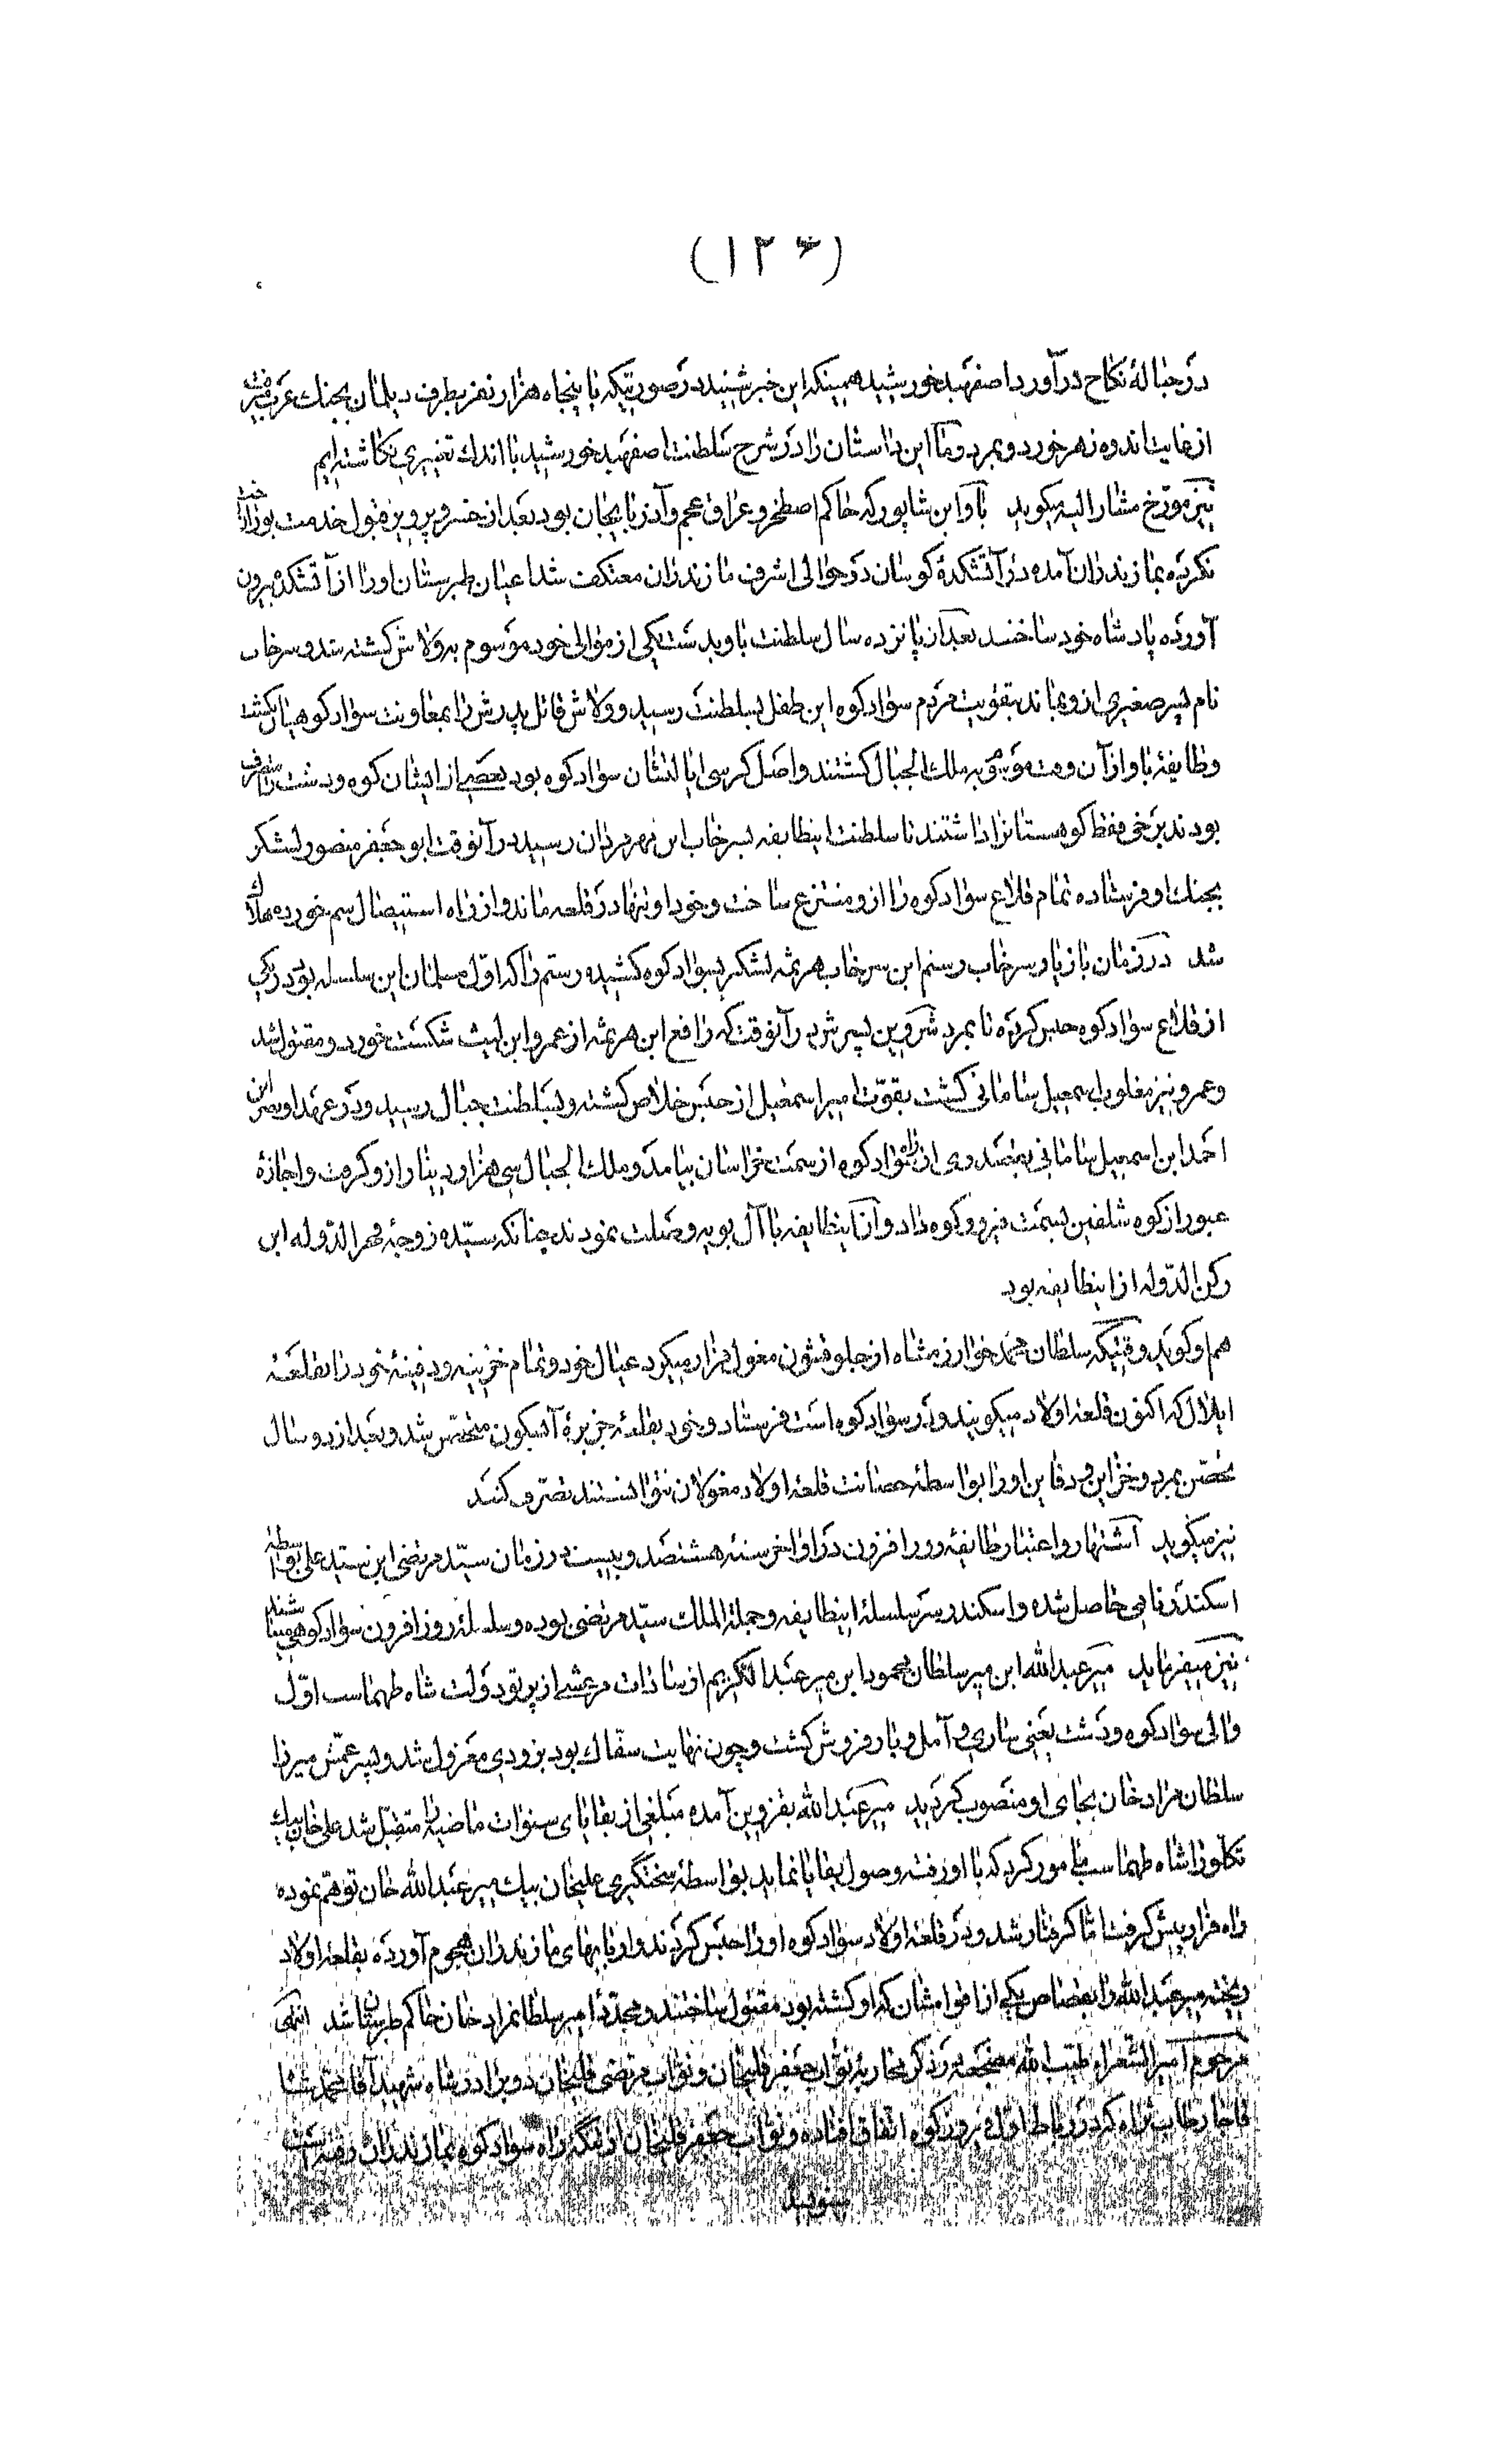 (۱۲۶)
در حبالهٔ نکاح درآورد اصفهبد خورشید همینکه این خبر شنید در صورتیکه با پنجاه هزار نفر بطرف دیلمان بجنك عرب میرفت
از غایت اندوه زهر خورد و بمرد و ما این داستان را در شرح سلطنت اصفهبد خورشید با اندك تغییری نگاشته‌ایم
نیز مورّخ مشار الیه میگوید باو ابن شاپور که حاکم اصطخر و عراق عجم و آذربایجان بود بعد از خسرو پرویز قبول خدمت پوراندخت
نکرده بمازندران آمده در آتشکدهٔ کوسان در حوالی اشرف مازندران معتکف شد اعیان طبرستان او را از آتشکده بیرون
آورده پادشاه خود ساختند بعد از پانزده سال سلطنت باو بدست یکی از موالی خود موسوم به ولاش کشته شد و سرخاب
نام پسر صغیری از و بماند بتقویت مردم سوادکوه این طفل بسلطنت رسید و ولاش قاتل پدرش را بمعاونت سوادکوهیان بکشت
و طایفهٔ باو از آن وقت موسوم به ملك الجبال گشتند و اصل کرسی ایالتشان سوادکوه بود بعضی از ایشان کوه و دشت را متصرف
بودند برخی فقط کوهستانرا داشتند تا سلطنت اینطایفه بسرخاب ابن مهرمردان رسید در آنوقت ابو جعفر منصور لشکر
بجنك او فرستاده تمام قلاع سوادکوه را از و منتزع ساخت و خود او تنها در قلعه ماند و از راه استیصال سم خورده هلاك
شد در زمان مازیار سرخاب رستم ابن سرخاب هرثمه لشکر بسوادکوه کشیده رستم را که اوّل مسلمان این سلسله بود در یکی
از قلاع سوادکوه حبس کرده تا بمرد شروین پسرش در آنوقت که رافع ابن هرثمه از عمرو ابن لیث شکست خورد و مقتول شد
و عمرو نیز مغلوب اسمعیل سامانی گشت بقوّت امیر اسمعیل از حبس خلاص گشته و بسلطنت جبال رسید و در عهد او نصر ابن
احمد ابن اسمعیل سامانی بقصد ری از راه سوادکوه از سمت خراسان بیامد و ملك الجبال سی هزار دینار از و گرفت و اجازهٔ
عبور از کوه شلفین بسمت فیروزکوه داد و آن اینطایفه با آل بویه وصلت نمودند چنانکه سیّده زوجهٔ فخر الدّوله ابن
رکن الدّوله از اینطایفه بود
هم او گوید وقتیکه سلطان محمد خوارزمشاه از جلو قشون مغول فرار میکرد عیال خود و تمام خزینه و دفینهٔ خود را بقلعهٔ
ایلال که اکنون قلعه اولاد میگویند و در سوادکوه است فرستاد و خود بقلعهٔ جزیرهٔ آبسکون متحصّن شد و بعد از دو سال
تحصّن بمرد و خزاین و دفاین او را بواسطهٔ حصانت قلعهٔ اولاد مغولان نتوانستند تصرّف کنند
نیز میگوید اشتهار و اعتبار طایفهٔ روزافزون در اواخر سنهٔ هشتصد و بیست در زمان سیّد مرتضی ابن سیّد علی بواسطهٔ
اسکندر نامی حاصل شده و اسکندر سر سلسلهٔ اینطایفه و جملة الملك سیّد مرتضی بوده و سلسلهٔ روزافزون سوادکوهی میباشند
نیز میفرماید میر عبد الله ابن میر سلطان محمود ابن میر عبد الکریم از سادات مرعشی از پرتو دولت شاه طهماسب اوّل
والی سوادکوه و دشت یعنی ساری و آمل و بارفروش گشت و چون نهایت سفّاك بود بزودی معزول شد و پسر عمّش میرزا
سلطان مراد خان بجای او منصوب گردید میر عبد الله بقزوین آمده مبلغی از بقایای سنوات ماضیه را متقبّل شد علی خان بیك
تکلو را شاه طهماسب مامور کرد که با او رفته وصول بقایا نماید بواسطهٔ سختگیری علیخان بیك میر عبد الله خان توهّم نموده
راه فرار پیش گرفت امّا گرفتار شد و در قلعهٔ اولاد سوادکوه او را حبس کردند و اوباهای مازندران هجوم آورده بقلعهٔ اولاد
ریخته میر عبد الله را بقصاص یکی از اقوامشان که او کشته بود مقتول ساختند و مجدّدا میر سلطانمراد خان حاکم طبرستان شد انتهی
مرحوم امیر الشعراء طیّب الله مضجعه در ذکر محاربهٔ نوّاب جعفر قلیخان و نوّاب مرتضی قلیخان دو برادر شاه شهید آقا محمّد شاه
قاجار طاب ثراه که در رباط اول فیروزکوه اتّفاق افتاده و نوّاب جعفر قلیخان از تنگه راه سوادکوه بمازندران رفته است
مینویسد